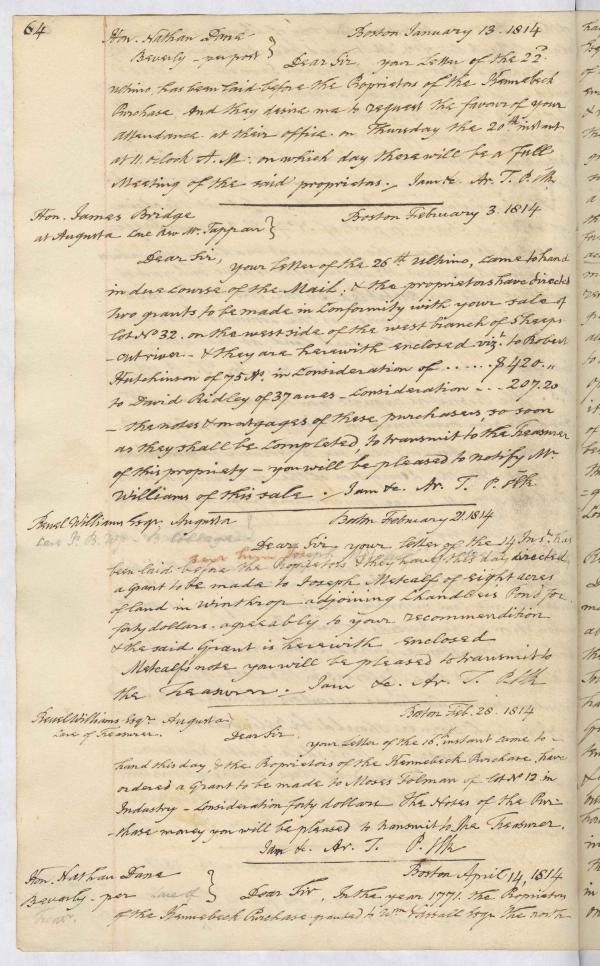 64
Hon. Nathan Dane
Beverly - per post
Boston January 13. 1814
Dear Sir, your Letter of the 22d
ultimo, has been laid before the Proprietors of the Kennebeck
Purchase, And they desire me to request the favour of your
attendance at their office on Thursday the 20th instant
at 11. oClock A. M. on which day there will be a Full
Meeting of the said proprietors. Iam &c. Ar. T. P. Clk
Hon. James Bridge
at Augusta Care Rev Mr. Tappan
Boston February 3. 1814
Dear Sir,
your Letter of the 26th Ultimo, came to hand
in due course of the Mail; & the proprietors have directed
two grants to be made in Conformity with your sale of
lot No 32. on the west side of the west branch of Sheeps-
-cut river - & they are herewith enclosed vizt. to Robert
Hutchinson of 75 As. in Consideration of ...... $420.,,
to David Ridley of 37 acres - Consideration - .. 207.20
- the notes & mortgages of these purchasers, so soon
as they shall be Completed, to transmit to the Treasurer
of this propriety - you will be pleased to notify Mr
Williams of this sale. Iam &c. Ar. T. P. Clk
Reuel Williams Esqr. Augusta
Boston February 21. 1814
Dear Sir, your letter of the 14 Inst. has
been laid before the Proprietors & they have this day directed
a Grant to be made to Joseph Metcalf of eight acres
of land in Winthrop adjoining Chandlers Pond for
forty dollars. agreeably to your recommendation
& the said Grant is herewith enclosed
Metcalfs note you will be pleased to transmit to
the Treasurer. Iam &c. Ar. T. P. Clk
Reuel Williams Esqr. Augusta
Care of Treasurer.
Boston Feb. 28. 1814
Dear Sir.
your Letter of the 16th. instant came to -
hand this day, & the Proprietors of the Kennebeck Purchase, have
ordered a Grant to be made to Moses Tolman of lot No 12 in
Industry - Consideration forty dollars. The Notes of the Pur-
-chase money you will be pleased to transmit to the Treasurer.
Iam &c. Ar. T. P. Clk
Hon. Nathan Dane
Beverly - per
Boston April 14, 1814
Dear Sir, In the year 1771. the Proprietors
of the Kennebeck Purchase granted to Wm Vassall Esqr. the north